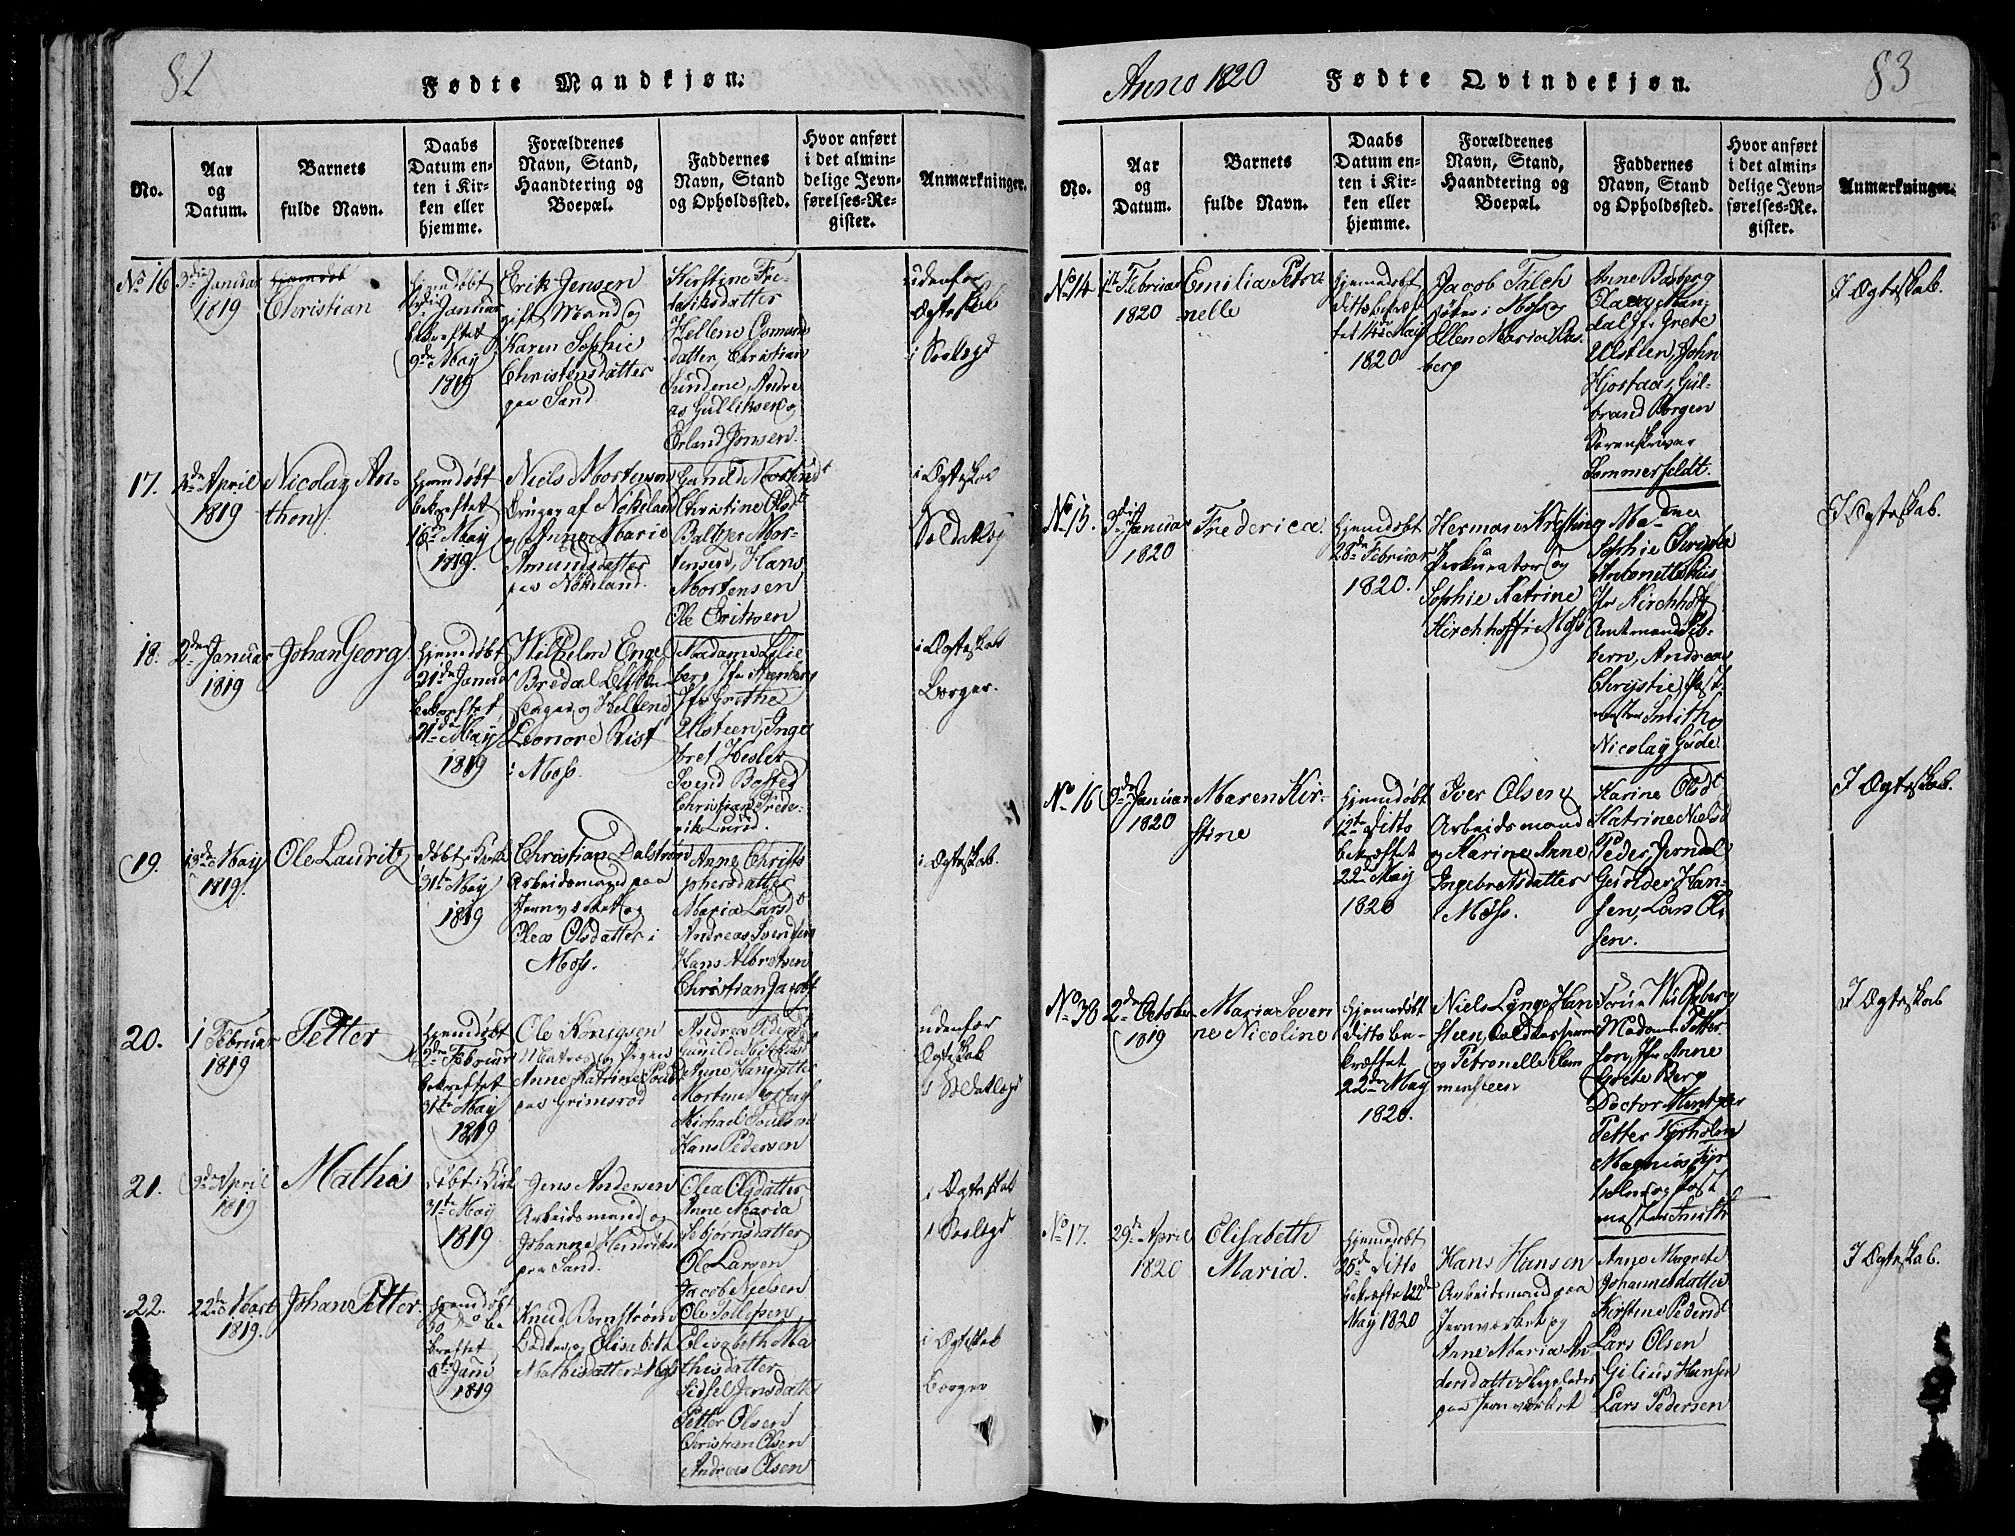 82
Fødte Mandkjøn.
No.
Aar
og
Datum.
Barnets
fulde Navn.
Daabs
Datum en-
ten i Kir-
ken eller
hjemme.
Forældrenes
Navn, Stand,
Haandtering og
Boepæl.
Faddernes
Navn, Stand
og Opholdssted.
Hvor anført
i det almin-
delige Jevn-
førelses-Re-
gister.
Anmærkninger.
No 16
3die Januar
1819
Christian
Hjemdøbt
3die Januar
bekræftet
9de May
1819
Erik Jensen
gift Mand og
Karen Sophie
Christensdatter
paa Sand
Kirstine Fre-
deriksdatter
Hellene Osmunds
datter, Christian
Sundene, Andre
as Gulliksen og
Erland Jonsen.
udenfor
Ægteskab
i Søelegd
17.
2den April
1819
Nicolay An-
thon
Hjemdøbt
bekræftet
16de May
1819.
Niels Mortensen
Bruger af Nøkeland
og Anne Marie
Amundsdatter
paa Nøkeland.
Gunild Mortensdt
Christine Olsdt
Baltzer Mor-
tensen, Hans
Mortensen
Ole Eriksen
i Ægteskab
Soldatlegd
18.
2den Januar
1819
Johan Georg
Hjemdøbt
21de Januar
bekræftet
21de May
1819
Wilhelm Engel
Bredal
og Hellene
Leonore Rist
i Moss.
Madame Lilie
berg Jfr Steenberg
Jfr Grethe
Ulsteen, Inge
bret Hesler
Svend Bosted
Christian Frede-
rik Lund.
i Ægteskab
Borger.
19.
13de May
1819.
Ole Lauritz
Døbt i Kirk
31te May
1819
Christian Dalstrøm
Arbeidsmand paa
Jernverket og
Olea Olsdatter i
Moss.
Anne Christo
phersdatter
Maria Larsd
Andreas Svendsen
Hans Albretsen
Christian Jacobs
i Ægteskab.
20.
1 Februar
1819
Petter
Hjemdøbt
2den Februar
bekræftet
31te May
1819
Ole Konigsen
Matros og Pigen
Anne Katrine
paa Grimsrød
Andreas
Gunild
Anne Hansdatter
Morten
Michael Poulsen
Hans Pedersen
udenfor
Ægteskab
i Soldatlegd
21.
9de April
1819
Mathis
Døbt i Kirk
31te May
1819
Jens Andersen
Arbeidsmand og
Johanne Hendriksd
paa Sand.
Olea Olsdatter
Anne Maria
Sebjørnsdatter
Ole Larsen
Jacob Nielsen
Ole Tollefsen
i Ægteskab
i Søelegd
22.
22de Mart
1819.
Johan Petter
Hjemdøbt
30 do be
kræftet
6te Juni
1819
Knud Bernstrøm
Bødker og Elisabeth
Mathisdatter i Moss
Elisabeth Ma
thisdatter
Sidsel Jensdatter
Petter Olsen
Christian Olsen
Andreas Olsen
i Ægteskab
Borger
Anno 1820
Fødte Qvindekjøn.
83
No.
Aar
og
Datum.
Barnets
fulde Navn.
Daabs
Datum en-
ten i Kir-
ken eller
hjemme.
Forældrenes
Navn, Stand,
Haandtering og
Boepæl.
Faddernes
Navn, Stand
og Opholdssted.
Hvor anført
i det almin-
delige Jevn-
førelses-Re-
gister.
Anmærkninger.
No 14
1te Februar
1820
Emilia Petro
nelle
Hjemdøbt
ditto bekræf
tet 14de May
1820
Jacob Falch
i Moss og
Ellen Maria Aas
berg
Anne Basberg
Olava Man-
dal, Jfr Grete
Ulsteen, John
Hjostaas, Gul-
brand Borgen
Sorenskriver
Sommerfeldt.
I Ægteskab.
No 15.
3die Januar
1820
Frederica
Hjemdøbt
28de Februar
1820.
Herman Kresting
Prokurator og
Sophie Katrine
Kirchhoff i Moss
Madme
Sophie Christe
Antonette Hius
Jfr Kirchhoff
Amtmand Sib-
bern, Andreas
Chrystie, Post-
mester Smith og
Nicolay Gude
I Ægteskab.
No 16
9de Januar
1820
Maren Kir-
stine
Hjemdøbt
12te Ditto
bekræftet
22de May
1820
Iver Olsen
Arbeidsmand
og Karine Anne
Ingebretsdatter
i Moss.
Karine Olsd
Katrine Nielsd
Peder Jerndal
Gulder Han-
sen, Lars Ol
sen.
I Ægteskab.
No 30
2de Octobr
1819
Maria Seven
ne Nicoline
Hjemdøbt
Ditto be-
kræftet
22de May
1820.
Niels Lynge Han
steen, Toldkasserer
og Petronelle Clem
mensteen
Frue Wulfsberg
Madame Petter
sen, Jfr Anne
Grete Berg
Doctor Mentzer
Petter Kyrholm
Magnus Kyr
holm og Post
mester Smith
I Ægteskab
No 17.
29de April
1820
Elisabeth
Maria.
Hjemdøbt
25de Ditto
bekræftet 22de
May 1820
Hans Hansen
Arbeidsmand paa
Jernværket og
Anne Maria An
dersdatter ligeledes
paa Jernværket
Anne Magrete
Johannesdatter
Kirstine Pedersd
Lars Olsen
Gilius Hansen
Lars Pedersen
I Ægteskab.